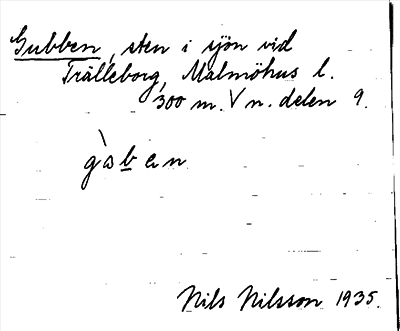 Gubben, sten i sjön vid
Trälleborg, Malmöhus l.
300 m. V n. delen 9.
gòben
Nils Nilsson 1935.